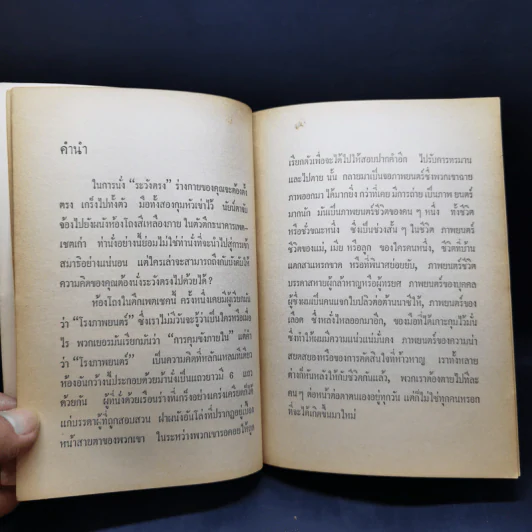 คำนำ
ในการนั่ง “ระวังตรง” ร่างกายของคุณจะต้องตั้ง
ตรง เกร็งไปทั้งตัว มือทั้งสองกุมหัวเข่าไว้ นัยน์ตาจ้อง
ไปยังผนังห้องโถงสีเหลือง
เขตเก่า ท่านั่งอย่างนี้ย่อมไม่ใช่ท่านั่งที่จะนำไปสู่การเข้า
สมาธิอย่างแน่นอน แต่ใครเล่าจะสามารถถึงกับบังคับให้
ความคิดของคุณต้องนั่งระวังตรงไปด้วยได้ ?
ห้องโถงในตึกเพตเชคนี้ ครั้งหนึ่งเคยมีผู้เรียกมัน
ว่า “โรงภาพยนตร์” ซึ่งเราไม่มีวันจะรู้ว่าเป็นใครหรือเมื่อ
ไร พวกเยอรมันเรียกมันว่า “การคุมขังภายใน” แต่คำ
ว่า “โรงภาพยนตร์” เป็นความคิดที่หลักแหลมทีเดียว
ห้องอันกว้างนี้ประกอบด้วยม้านั่งเป็นแถวยาวมี 6 แถว
ด้วยกัน ผู้ที่นั่งด้วยเรือนร่างที่เกร็งอย่างเคร่งเครียดก็ได้
แก่บรรดาผู้ที่ถูกสอบสวน ฝาผนังอันโล่งที่ปรากฏอยู่เบื้อง
หน้าสายตาของพวกเขา ในระหว่างพวกเขารอคอยให้ถูก
เรียกตัวเพื่อจะได้ไปให้สอบปากคำอีก ไปรับการทรมาน
และไปตาย นั้น กลายมาเป็นจอภาพยนตร์ซึ่งพวกเขาฉาย
ภาพออกมา ได้มากยิ่ง กว่าที่เคย มีการถ่าย เป็นภาพ ยนตร์
มากนัก มันเป็นภาพยนตร์ชีวิตของคน ๆ หนึ่ง ทั้งชีวิต
หรือชั่วขณะหนึ่ง ซึ่งเป็นช่วงสั้น ๆ ในชีวิต ภาพยนตร์
ชีวิตของแม่, เมีย หรือลูก ของใครคนหนึ่ง, ชีวิตที่บ้าน
แตกสาแหรกขาด หรือที่พินาศย่อยยับ, ภาพยนตร์ชีวิต
บรรดาสหายผู้กล้าหาญหรือผู้ทรยศ ภาพยนตร์ของบุคคล
ภาพยนตร์ของ
เลือด ซึ่งหลั่งไหลออกมาอีก,
ซึ่งทำให้ผมมีความแน่วแน่มั่นคง ภาพยนตร์ของความน่า
สยดสยองหรือของการตัดสินใจที่ห้าวหาญ เราทั้งหลาย
คน ๆ ต่อหน้าต่อตาตนเองอยู่ทุกวัน แต่ก็ไม่ใช่ทุกคนหรอก
ที่จะได้เกิดขึ้นมาใหม่